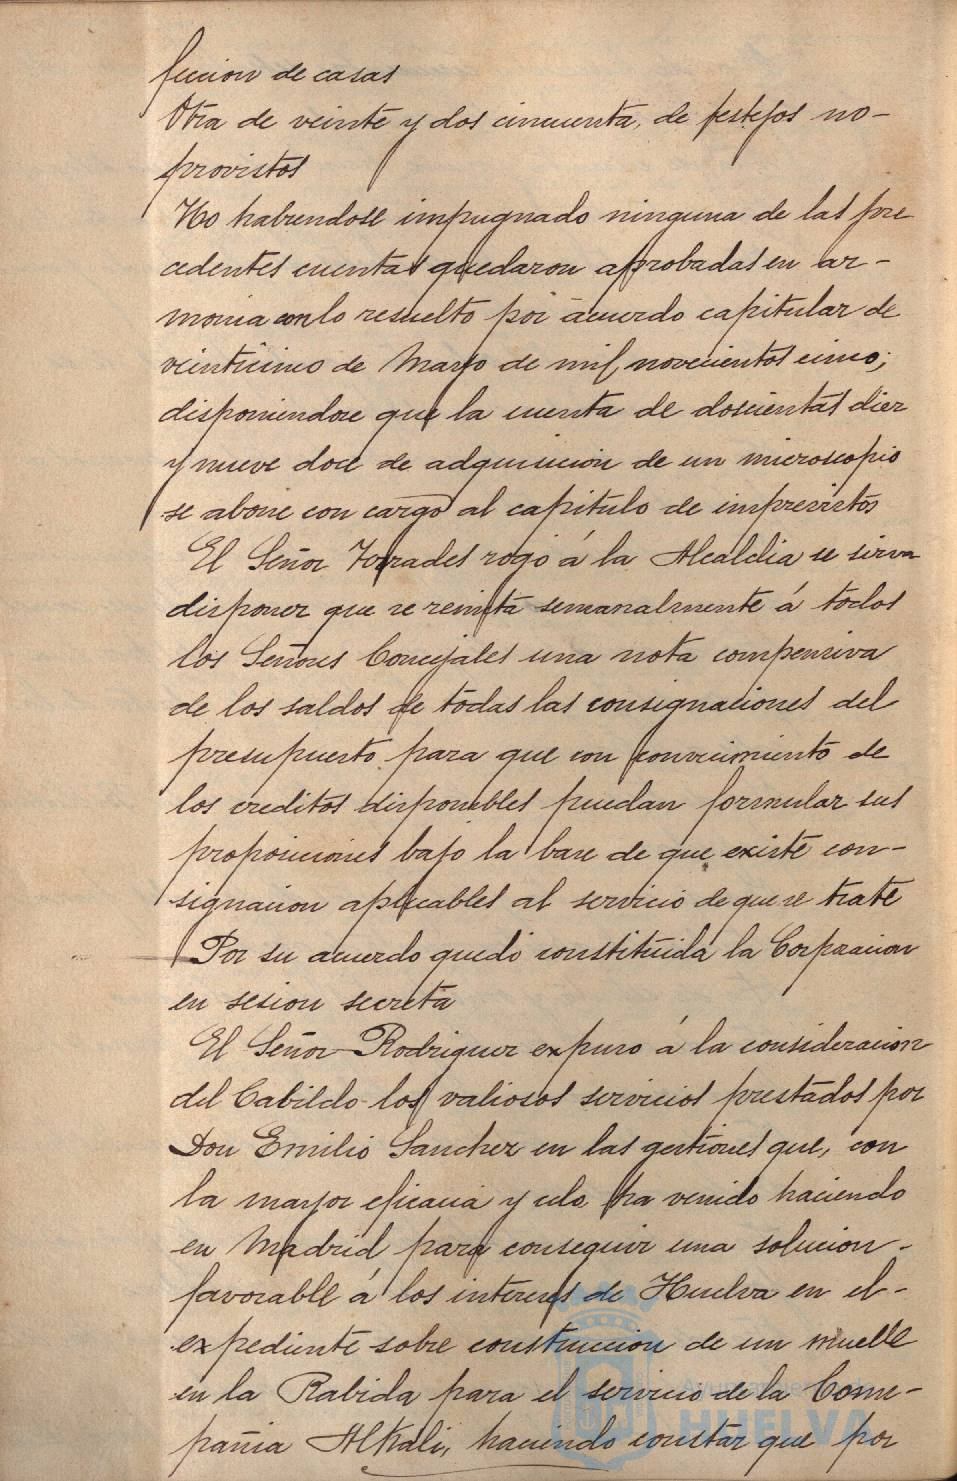 feccion de casas
Otra de veinte y dos cincuenta, de festejos no-
provistos
No habiendose impugnado ninguna de las pre
cedentes cuentas quedaron aprobadas en ar-
monia con lo resuelto por acuerdo capitular de
veinticinco de Mayo de mil novecientos cinco;
disponiendose que la cuenta de doscientas diez
y nueve doce de adquisicion de un microscopio
se abone con cargo al capitulo de imprevistos
El Señor Torrades rogó á la Alcaldia se sirva
disponer que se remita semanalmente á todos
los Señores Concejales una nota compensiva
de los saldos de todas las consignaciones del
presupuesto para que con conocimiento de
los creditos disponibles puedan formular sus
proposiciones bajo la base de que existe con-
signacion aplicables al servicio de que se trate
Por su acuerdo quedó constituida la Corporacion
en sesion secreta
El Señor Rodriguez expuso á la consideracion
del Cabildo los valiosos servicios prestados por
Don Emilio Sanchez en las gestiones que, con
la mayor eficacia y celo, ha venido haciendo
en Madrid para conseguir una solucion-
favorable á los intereses de Huelva en el-
expediente sobre construccion de un muelle
en la Rabida para el servicio de la Com-
pañia Alkali, haciendo constar que por
Ayuntamiento de
HUELVA